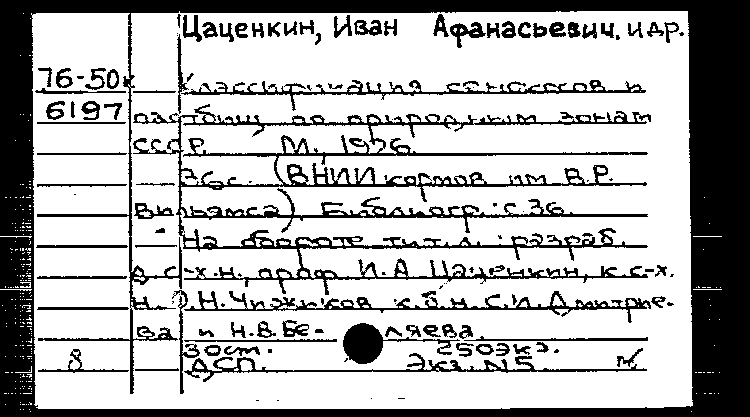 Цаценкин, Иван Афанасьевич. и др.
76-50к Классификация сенокосов и
6197 пастбищ по природным зонам
СССР. М., 1976.
36 с. (ВНИИ кормов им В.Р.
Вильямса). Библиогр.: с. 36.
На обороте тит. л.: разраб.
д.с-х.н., проф. И.А Цаценкин, к.с-х.
н. Н. Чижиков, к.б.н. С.И. Дмитрие-
ва и Н.В. Бе- ляева.
30 ст. 250 экз.
8 ДСП. Экз. N5.